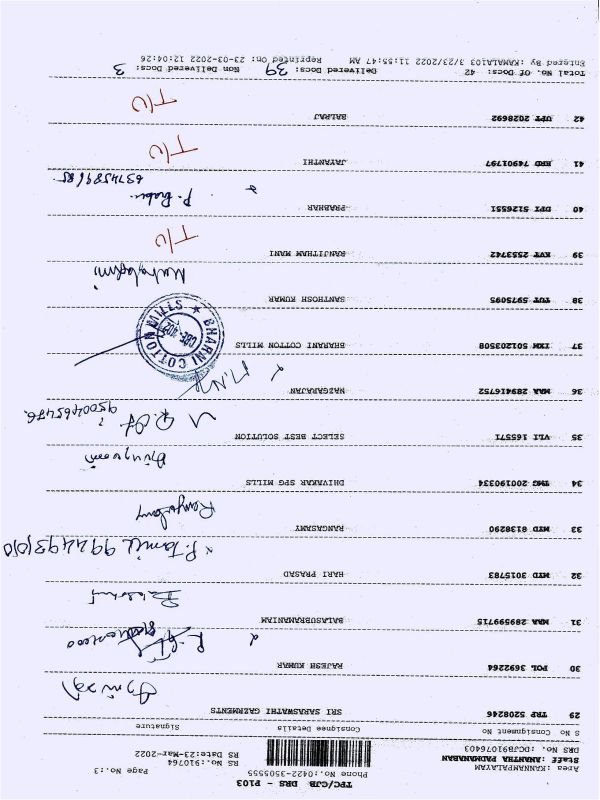 TPC/CJB DRS - P103
Phone No:0422-3505555
Page No.:3
Area :KANNAMPALAYAM
Staff :ANANTHA PADMANABAN
DRS No. :DCJB91076403
RS No.:910764
RS Date:23-Mar-2022
S No Consignment No Consignee Details Signature
29 TRP 5208246 SRI SARASWATHI GAZRMENTS
30 POL 3692264 RAJESH KUMAR
31 MAA 289599715 BALASUBRAMANIAM
32 MYD 3015783 HARI PRASAD
P. Tamil
33 MYD 8138290 RANGASAMY
Rangasamy
34 TMG 200190334 DHIVAKAR SPG MILLS
35 VLI 165571 SELECT BEST SOLUTION
9500465476
36 MAA 289416752 NAZGARAJAN
37 TKM 501203508 BHARANI COTTON MILLS
BHARNI COTTON MILLS
38 TUT 5975095 SANTHOSH KUMAR
39 KVT 2553742 RANJITHAM MANI
T/U
40 DPT 5126551 PRABHAR
P. Babu
6374589685
41 ERD 74901797 JAYANTHI
T/U
42 UPT 2028692 BALRAJ
T/U
Total No. Of Docs: 42 Delivered Docs: 39 Non Delivered Docs: 3
Entered By: KAMALA103 3/23/2022 11:55:47 AM Reprinted On: 23-03-2022 12:04:26